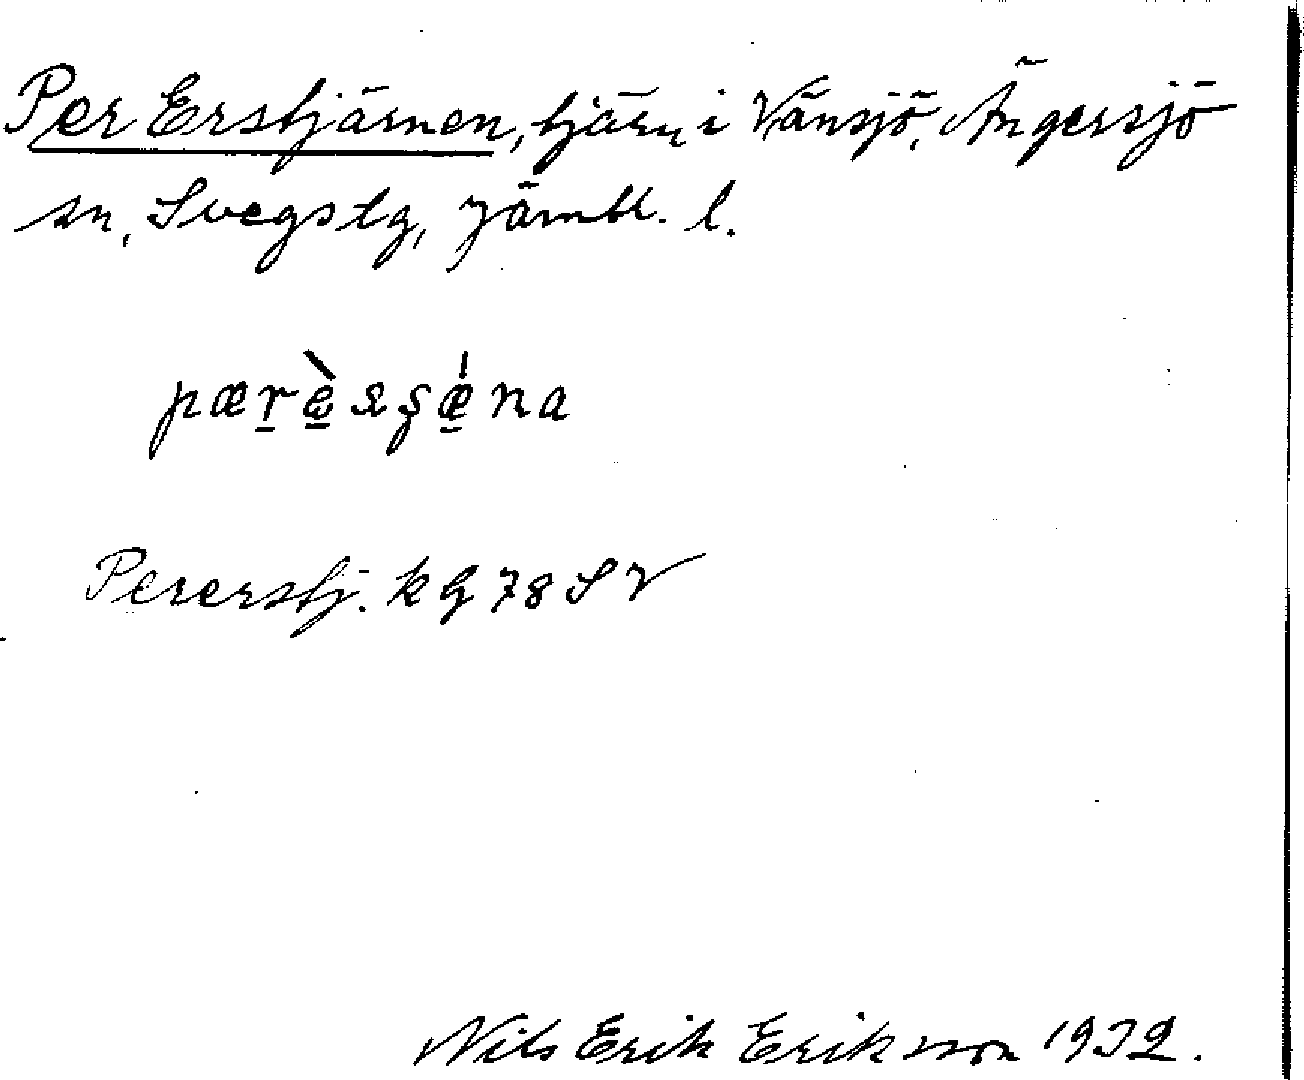 Per Erstjärnen, tjärn i Vänsjö, Ängersjö
sn, Svegs tg, Jämtl. l.
pærèsʂǽna
Pererstj. k bl 78 SV
Nils Erik Eriksson 1932.